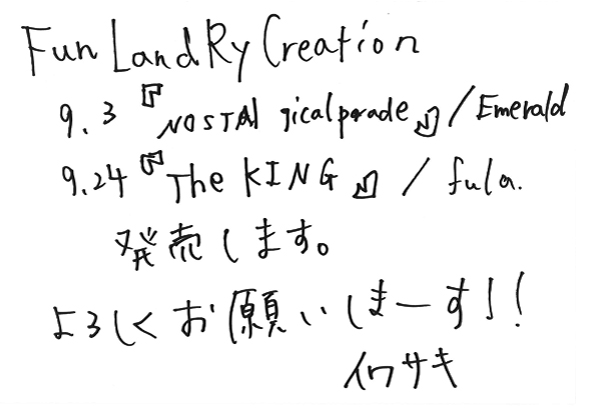 Fun LandRy Creation
9.3 『NOSTAlgicalparade』/Emerald
9.24 『The KING』/fula.
発売します。
よろしくお願いしまーす!!
イワサキ